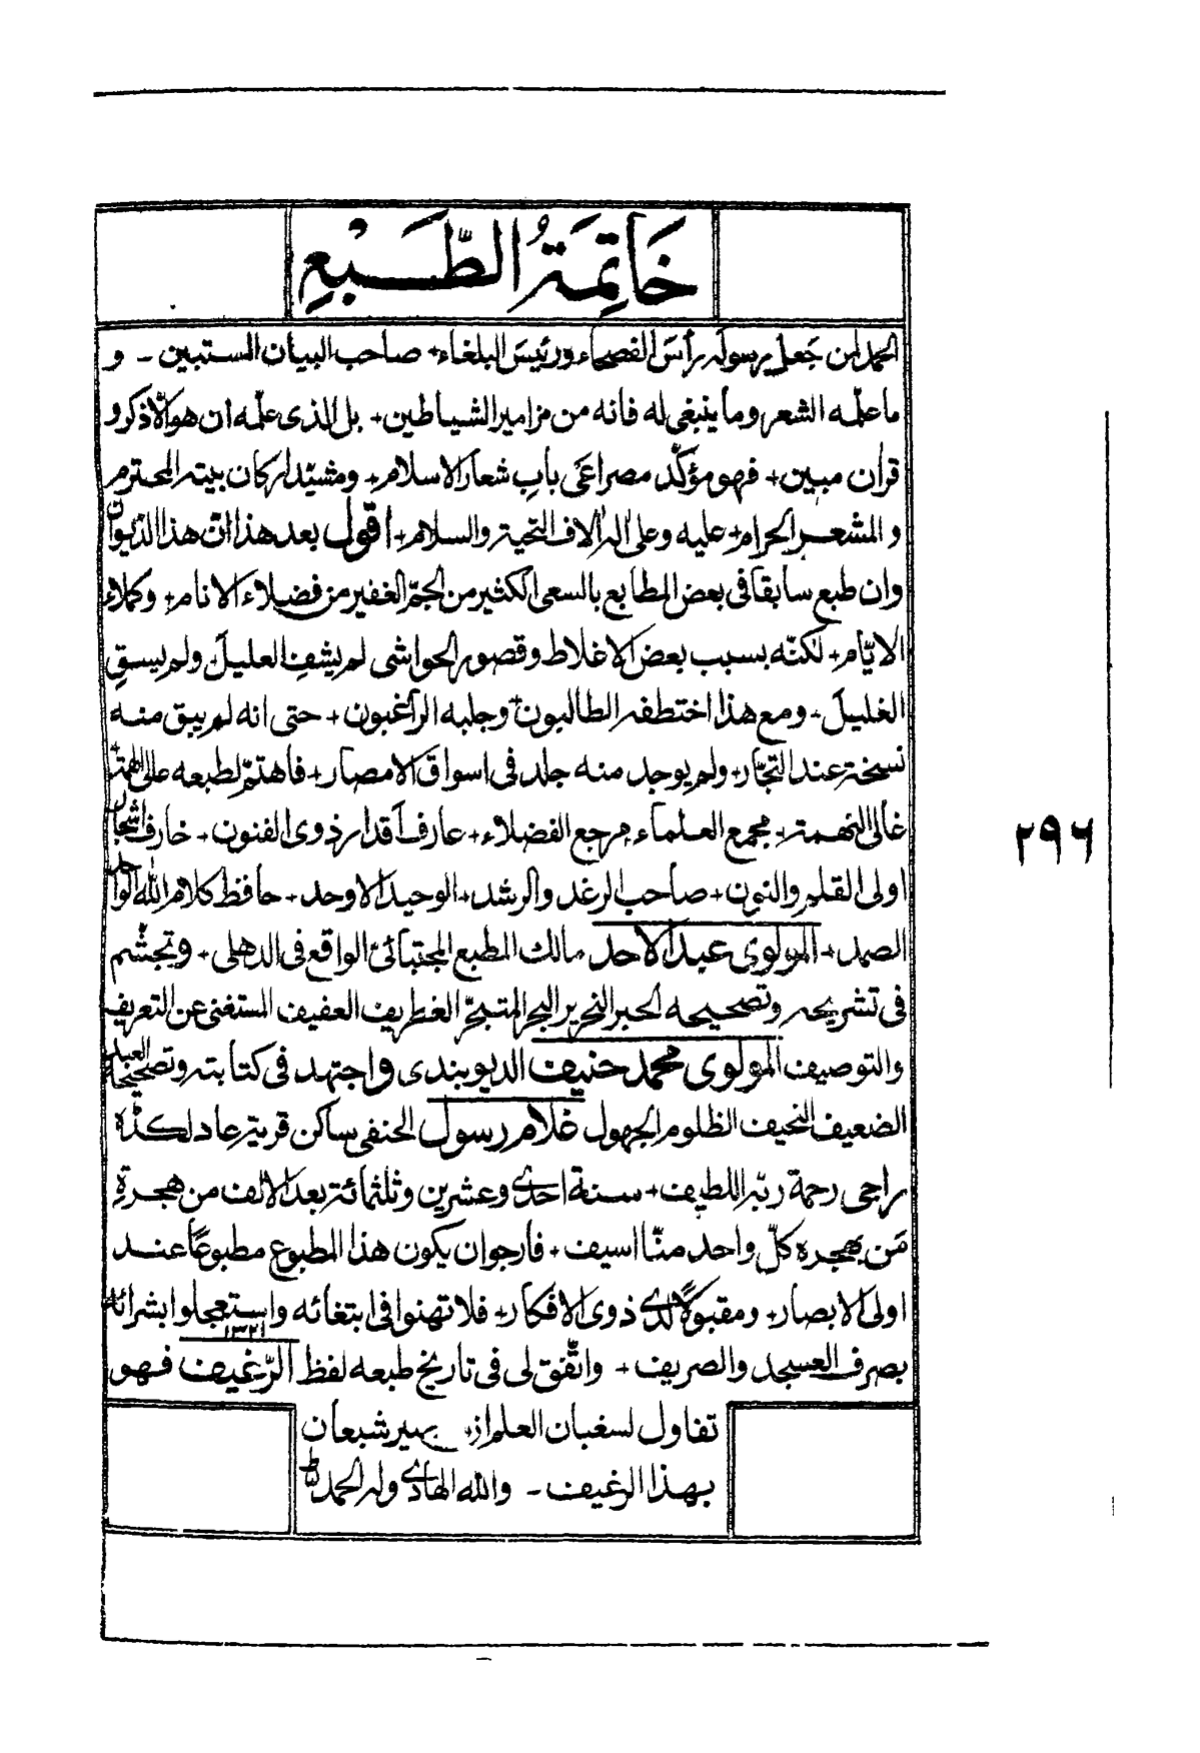 خَاتِمَةُ الطَّبْعِ
الحمد لمن جَعل رسوله رأسَ الفصحاء ورئيسَ البلغاء + صاحب البيان المستبين - و
ما علّمه الشعر وما ينبغي له فانه من مزامير الشياطين + بل الذى علّمه ان هو الّا ذكر و
قرآن مبين + فهو مؤكّد مصراعَى بابِ شعار الاسلام + ومشيّد اركان بيته المحترم
و المشعر الحرام + عليه وعلى اله الاف التحية والسلام + اقول بعد هذا انّ هذا الديوان
وان طبع سابقا فى بعض المطابع بالسعى الكثير من الجمّ الغفير من فضلاء الانام + وكملاء
الايّام + لكنّه بسبب بعض الاغلاط وقصور الحواشى لم يشفِ العليلَ ولم يسقِ
الغليلَ - ومع هذا اختطفه الطالبون + وجلبه الراغبون + حتى انه لم يبق منه
نسخة عند التجّار + ولم يوجد منه جلد فى اسواق الامصار + فاهتمّ لطبعه عالى الهمّة +
غالى النهمة + مجمع العلماء مرجع الفضلاء + عارف اقدار ذوى الفنون + خارف اشجار
اولى القلم والنون + صاحب الرغد والرشد + الوحيد الاوحد + حافظ كلام الله الواحد
الصمد + المولوى عبد الاحد مالك المطبع المجتبائىّ الواقع فى الدهلى + وتجشّم
فى تشريحه وتصحيحه الحبر النحرير البحر المتبحّر الغطريف العفيف المستغنى عن التعريف
والتوصيف المولوى محمد حنيف الديوبندى واجتهد فى كتابته وتصحيحه العبد
الضعيف النحيف الظلوم الجهول غلام رسول الحنفى ساكن قرية عادلكده
راجى رحمة ربّه اللطيف + سنة احدى وعشرين وثلثمائة بعد الالف من هجرةِ
مَن بهجره كلّ واحد منّا اسيف + فارجو ان يكون هذا المطبوع مطبوعًا عند
اولى الابصار + ومقبولًا لدى ذوى الافكار + فلا تهنوا فى ابتغائه واستعجلوا بشرائه
بصرف العسجد والصريف + واتّفق لى فى تاريخ طبعه لفظ الرّغيف ١٣٢١ فهو
تفاول لسغبان العلم از يصير شبعان
بهذا الرغيف - والله الهادى وله الحمد
٢٩٦